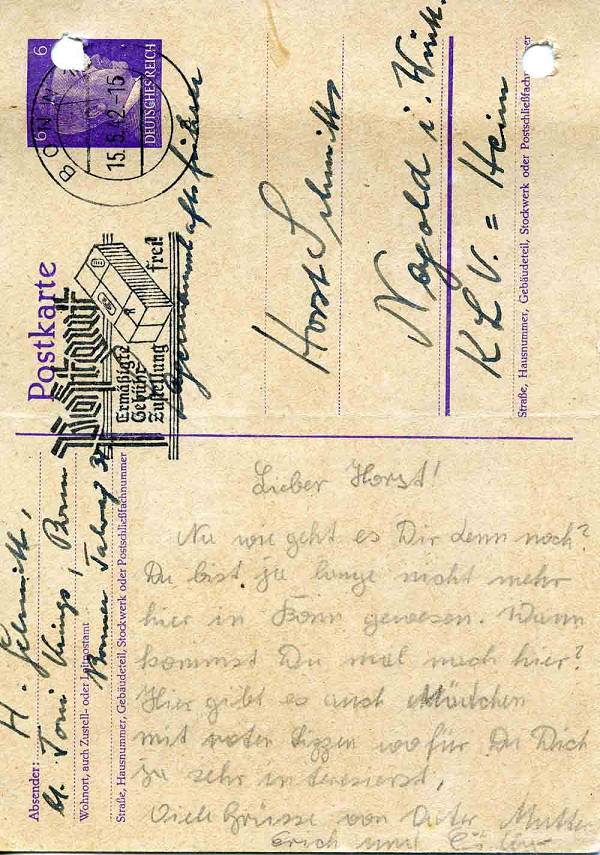 Postkarte
6 6
DEUTSCHES REICH
BONN
15.5.42.-15
Postgut
Ermäßigte
Gebühr
Zustellung
frei!
Horst Schmitz
Nagold i. Württ.
KLV. = Heim
Straße, Hausnummer, Gebäudeteil, Stockwerk oder Postschließfachnummer
Absender: H. Schmitz,
Toni Krings, Bonn
Wohnort, auch Zustell- oder Leitpostamt
Bonner Talweg
Straße, Hausnummer, Gebäudeteil, Stockwerk oder Postschließfachnummer
Lieber Horst!
Nu wie geht es Dir denn noch?
Du bist ja lange nicht mehr
hier in Bonn gewesen. Wann
kommst Du mal nach hier?
Hier gibt es auch Mädchen
mit roten Lippen wofür Du Dich
ja sehr interesierst,
Viele Grüsse von Dieter Mutter
Erich und